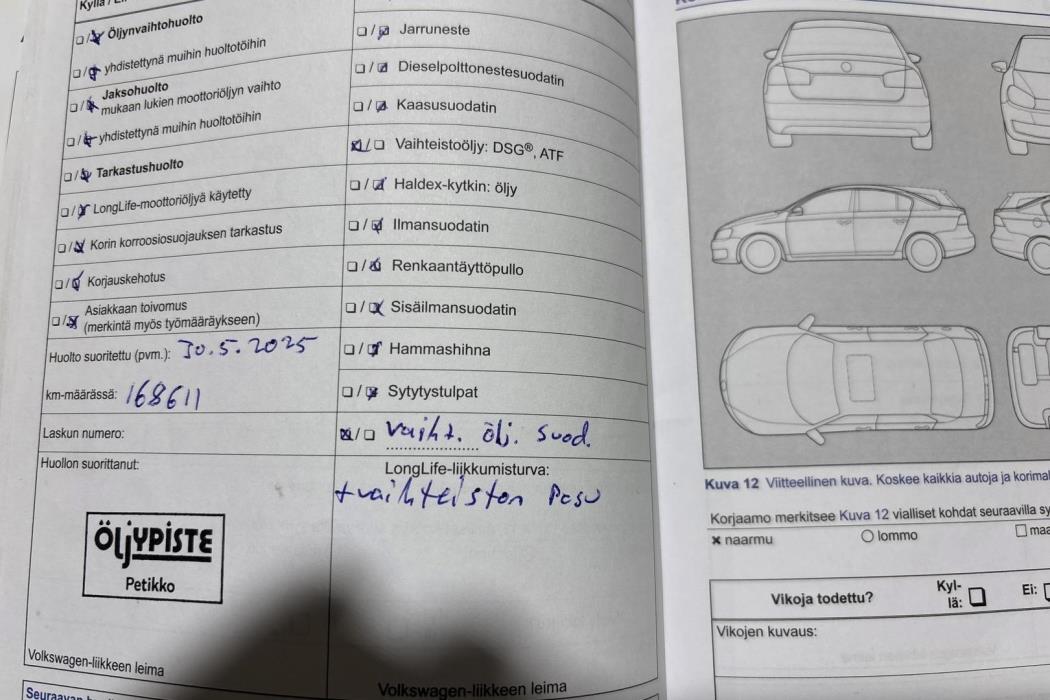 Öljynvaihtohuolto
yhdistettynä muihin huoltotöihin
Jaksohuolto
mukaan lukien moottoriöljyn vaihto
yhdistettynä muihin huoltotöihin
Tarkastushuolto
LongLife-moottoriöljyä käytetty
Korin korroosiosuojauksen tarkastus
Korjauskehotus
Asiakkaan toivomus
(merkintä myös työmääräykseen)
Huolto suoritettu (pvm.): 30.5.2025
km-määrässä: 168611
Laskun numero:
Huollon suorittanut:
ÖljYPISTE
Petikko
Volkswagen-liikkeen leima
Jarruneste
Dieselpolttonestesuodatin
Kaasusuodatin
Vaihteistoöljy: DSG®, ATF
Haldex-kytkin: öljy
Ilmansuodatin
Renkaantäyttöpullo
Sisäilmansuodatin
Hammashihna
Sytytystulpat
vaiht. ölj. suod.
LongLife-liikkumisturva:
+vaihteiston pesu
Volkswagen-liikkeen leima
Kuva 12 Viitteellinen kuva. Koskee kaikkia autoja ja
Korjaamo merkitsee Kuva 12 vialliset kohdat seuraavilla
naarmu
lommo
Vikoja todettu?
Kyl-
lä:
Ei:
Vikojen kuvaus: